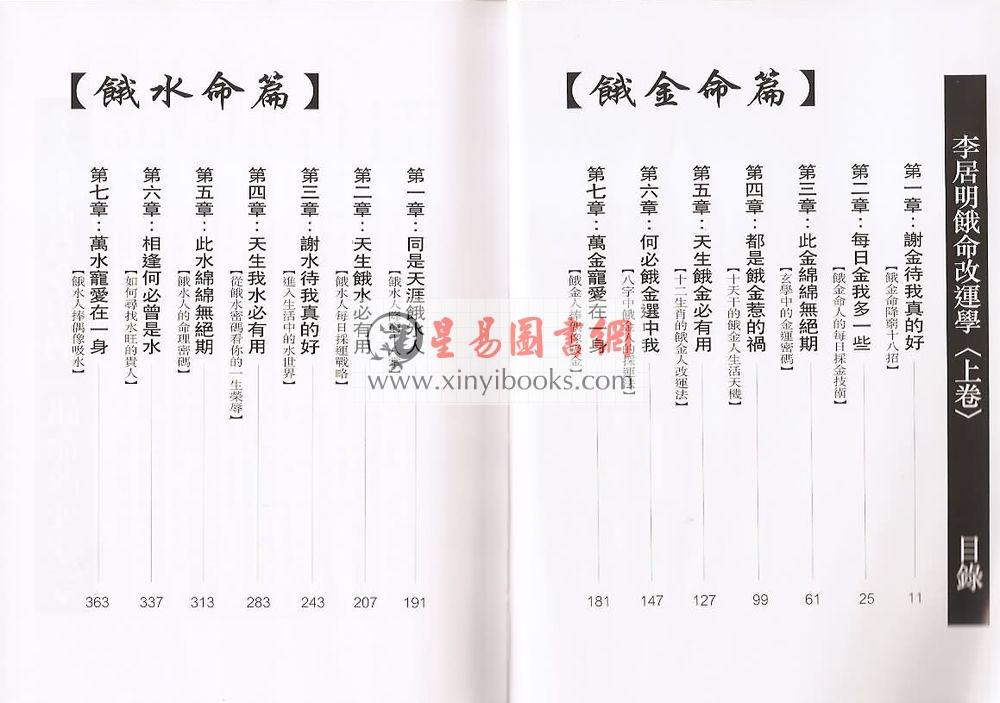 李居明餓命改運學〈上卷〉
目錄
【餓金命篇】
第一章：謝金待我真的好
【餓金命降窮十八招】
11
第二章：每日金我多一些
【餓金命人的每日採金技術】
25
第三章：此金綿綿無絕期
【玄學中的金運密碼】
61
第四章：都是餓金惹的禍
【十天干的餓金人生活天機】
99
第五章：天生餓金必有用
【十二生肖的餓金人改運法】
127
第六章：何必餓金選中我
【八字中餓金人的採運法】
147
第七章：萬金寵愛在一身
【餓金人捧偶像吸金】
181
【餓水命篇】
第一章：同是天涯餓水人
【餓水人
191
第二章：天生餓水必有用
【餓水人每日採運戰略】
207
第三章：謝水待我真的好
【進入生活中的水世界】
243
第四章：天生我水必有用
【從餓水密碼看你的一生榮辱】
283
第五章：此水綿綿無絕期
【餓水人的命理密碼】
313
第六章：相逢何必曾是水
【如何尋找水旺的貴人】
337
第七章：萬水寵愛在一身
【餓水人捧偶像吸水】
363
星易圖書網
www.xinyibooks.com